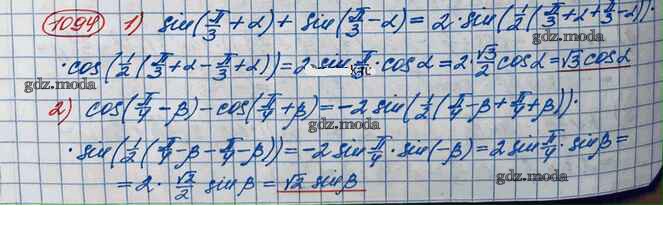 1094 1) sin(π/3 + α) + sin(π/3 − α) = 2·sin(1/2(π/3 + α + π/3 − α))·
gdz.moda
·cos(1/2(π/3 + α − π/3 + α)) = 2·sin π/3 · cos α = 2·√3/2 cos α = √3 cos α
gdz.moda
gdz.moda
2) cos(π/4 − β) − cos(π/4 + β) = −2 sin(1/2(π/4 − β + π/4 + β))·
gdz.moda
·sin(1/2(π/4 − β − π/4 − β)) = −2 sin π/4 · sin(−β) = 2 sin π/4 · sin β =
gdz.moda
gdz.moda
= 2 · √2/2 sin β = √2 sin β
gdz.moda